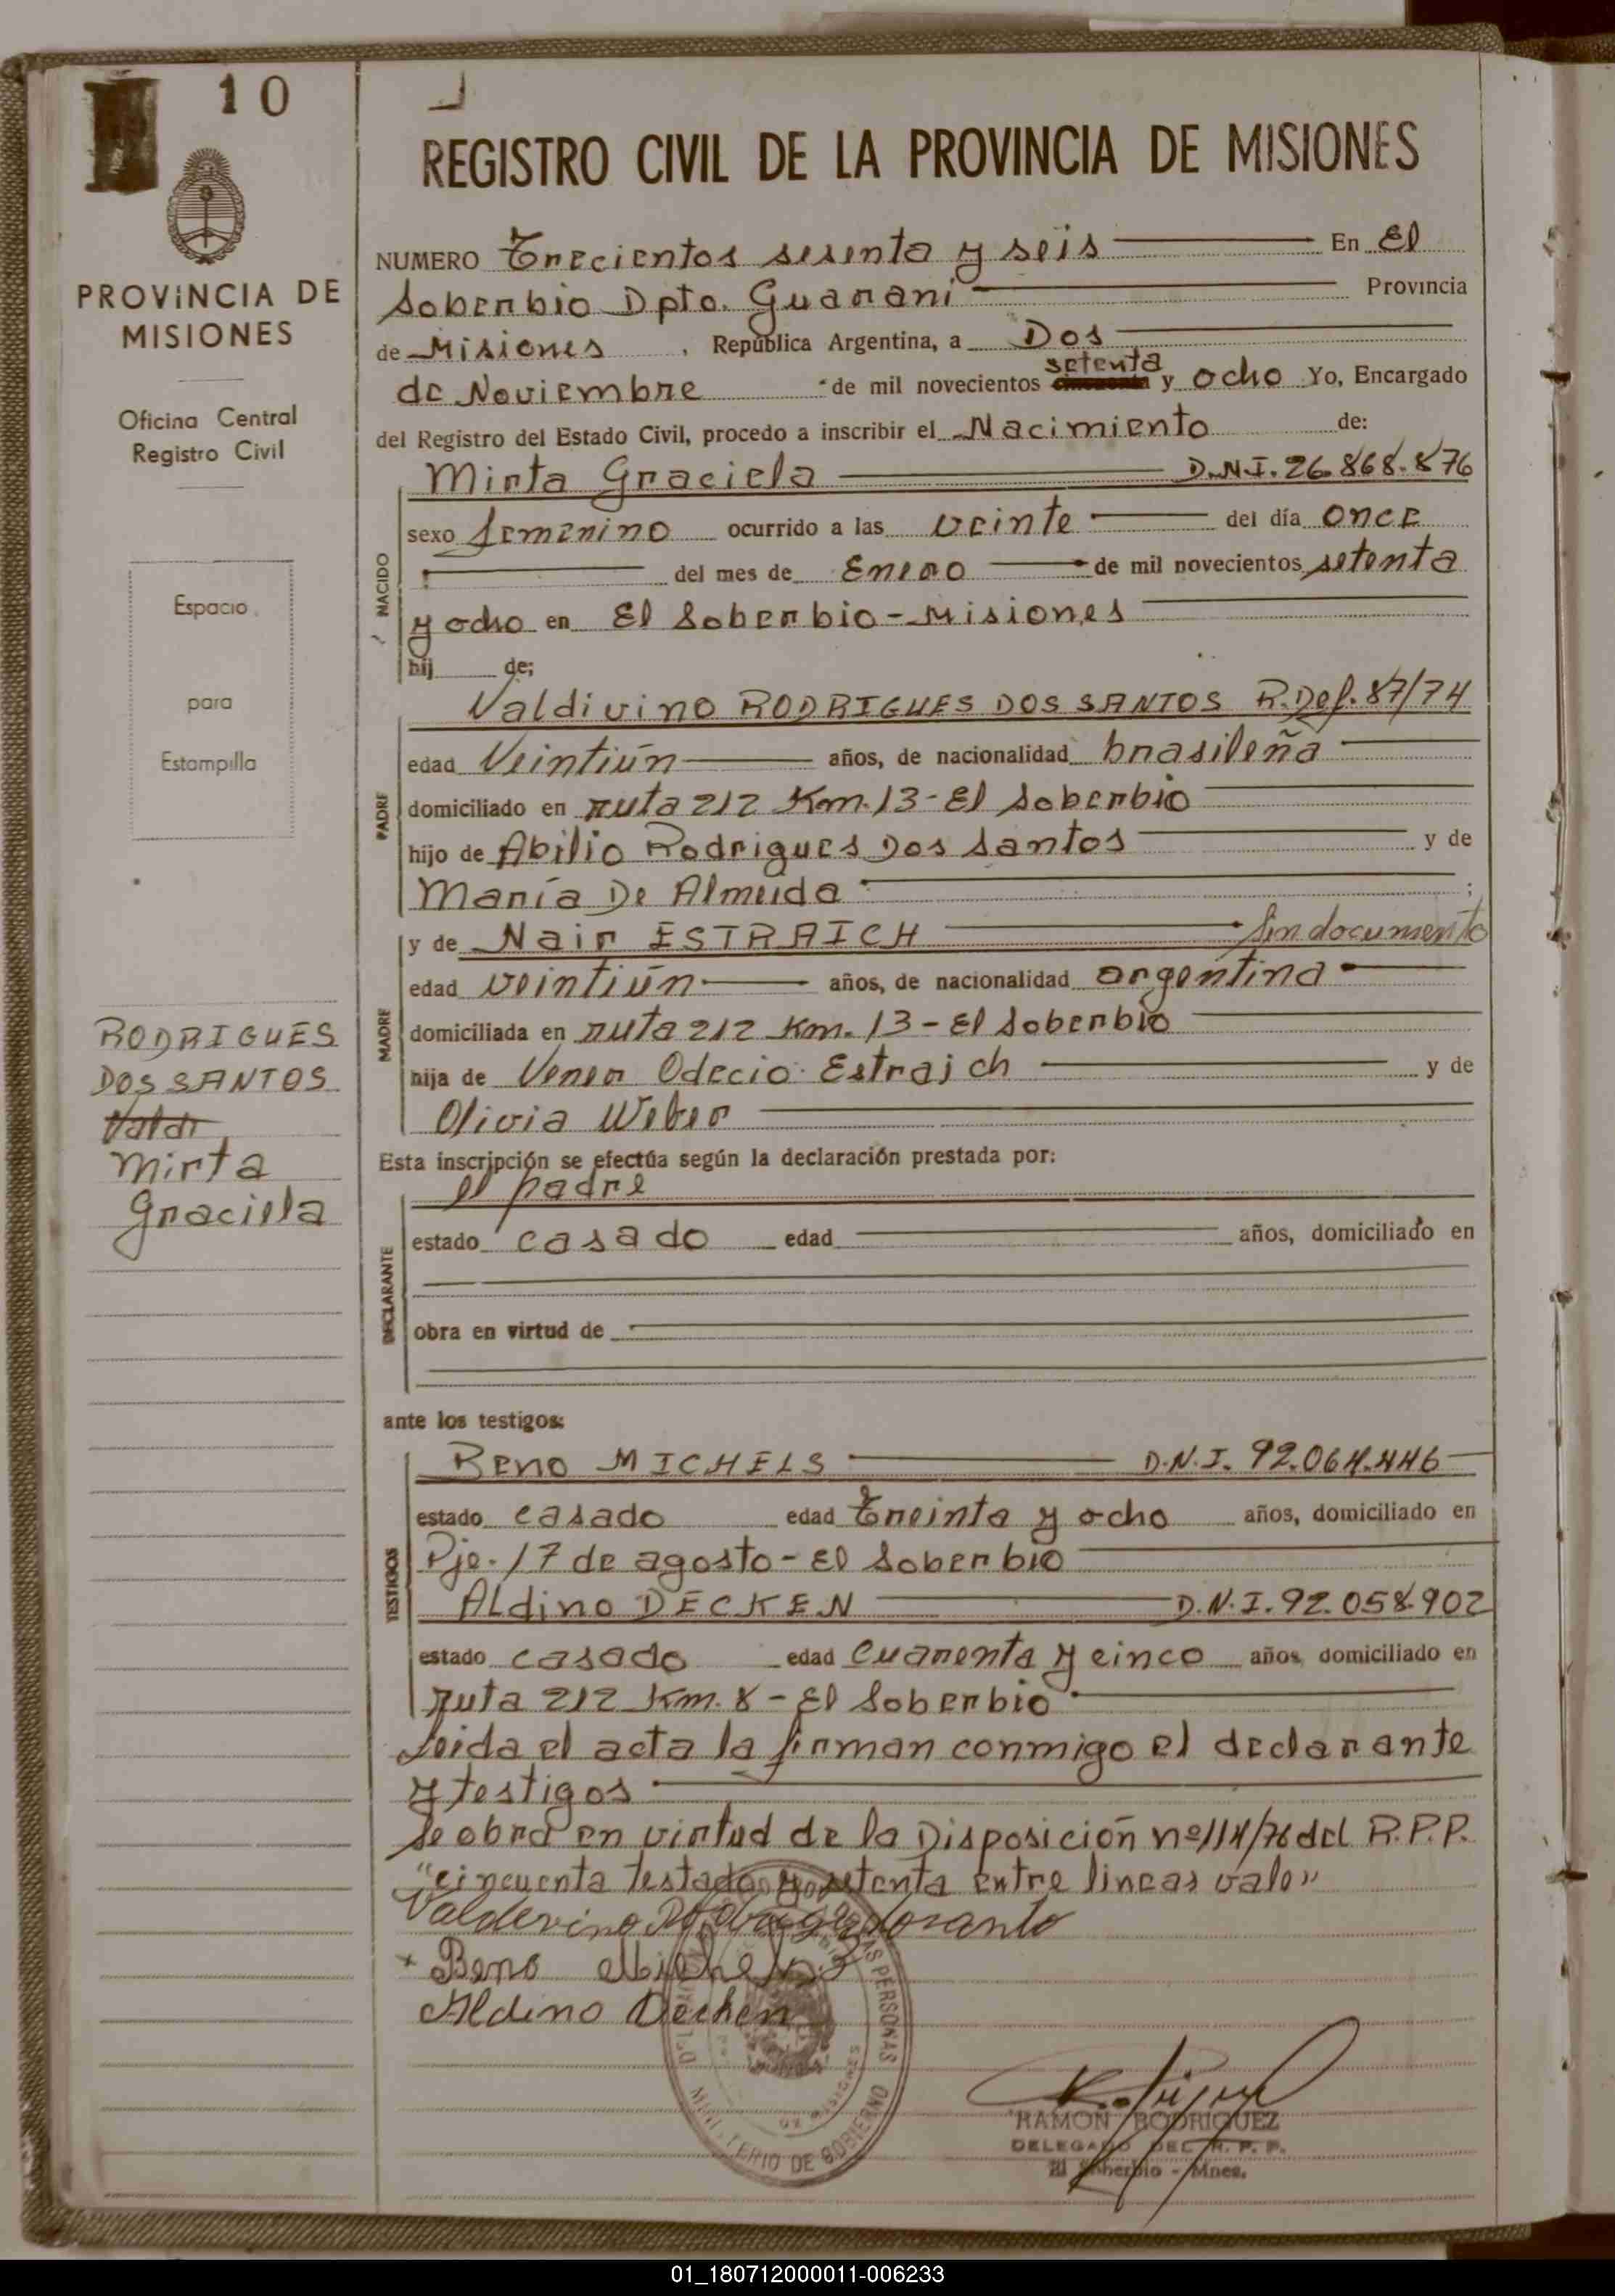 10
PROVINCIA DE
MISIONES
Oficina Central
Registro Civil
Espacio
para
Estampilla
RODRIGUES
DOS SANTOS
Valdi
Mirta
Graciela
REGISTRO CIVIL DE LA PROVINCIA DE MISIONES
NUMERO Trecientos sesenta y seis En El
Soberbio Dpto. Guarani Provincia
de Misiones, República Argentina, a Dos
setenta
de Noviembre de mil novecientos cincuenta y ocho Yo, Encargado
del Registro del Estado Civil, procedo a inscribir el Nacimiento de:
Mirta Graciela D.N.I. 26.868.876
NACIDO
sexo femenino ocurrido a las veinte del día once
del mes de Enero de mil novecientos setenta
y ocho en El Soberbio - Misiones
hij de;
Valdivino RODRIGUES DOS SANTOS R.Def. 87/74
PADRE
edad Veintiún años, de nacionalidad brasileña
domiciliado en ruta 212 Km. 13 - El Soberbio
hijo de Abilio Rodrigues Dos Santos y de
María De Almeida ;
y de Nair ESTRAICH Sin documento
MADRE
edad veintiún años, de nacionalidad argentina
domiciliada en ruta 212 Km. 13 - El Soberbio
hija de Vener Odecio Estraich y de
Olivia Weber
Esta inscripción se efectúa según la declaración prestada por:
el padre
DECLARANTE
estado casado edad años, domiciliado en
obra en virtud de
ante los testigos:
Beno MICHELS D.N.I. 92.064.446
TESTIGOS
estado casado edad Treinta y ocho años, domiciliado en
Pje. 17 de agosto - El Soberbio
Aldino DECKEN D.N.I. 92.058.902
estado casado edad cuarenta y cinco años, domiciliado en
ruta 212 Km. 8 - El Soberbio
Leida el acta la firman conmigo el declarante
y testigos
Se obra en virtud de la Disposición nº 114/76 del R.P.P.
"cincuenta testado y setenta entre lineas vale"
Valderino Rodrigues dosanto
+ Beno Michels
Aldino Decken
AS PERSONAS
MINISTERIO DE GOBIERNO
MISIONES
RAMON RODRIGUEZ
DELEGADO DEL R. P. P.
El Soberbio - Mnes.
01_180712000011-006233